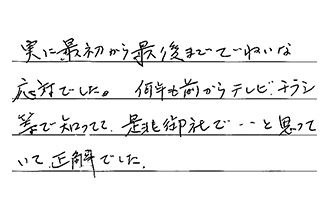 実に最初から最後までていねいな
応対でした。何年も前からテレビ、チラシ
等で知ってて、是非御社で・・と思って
いて、正解でした。